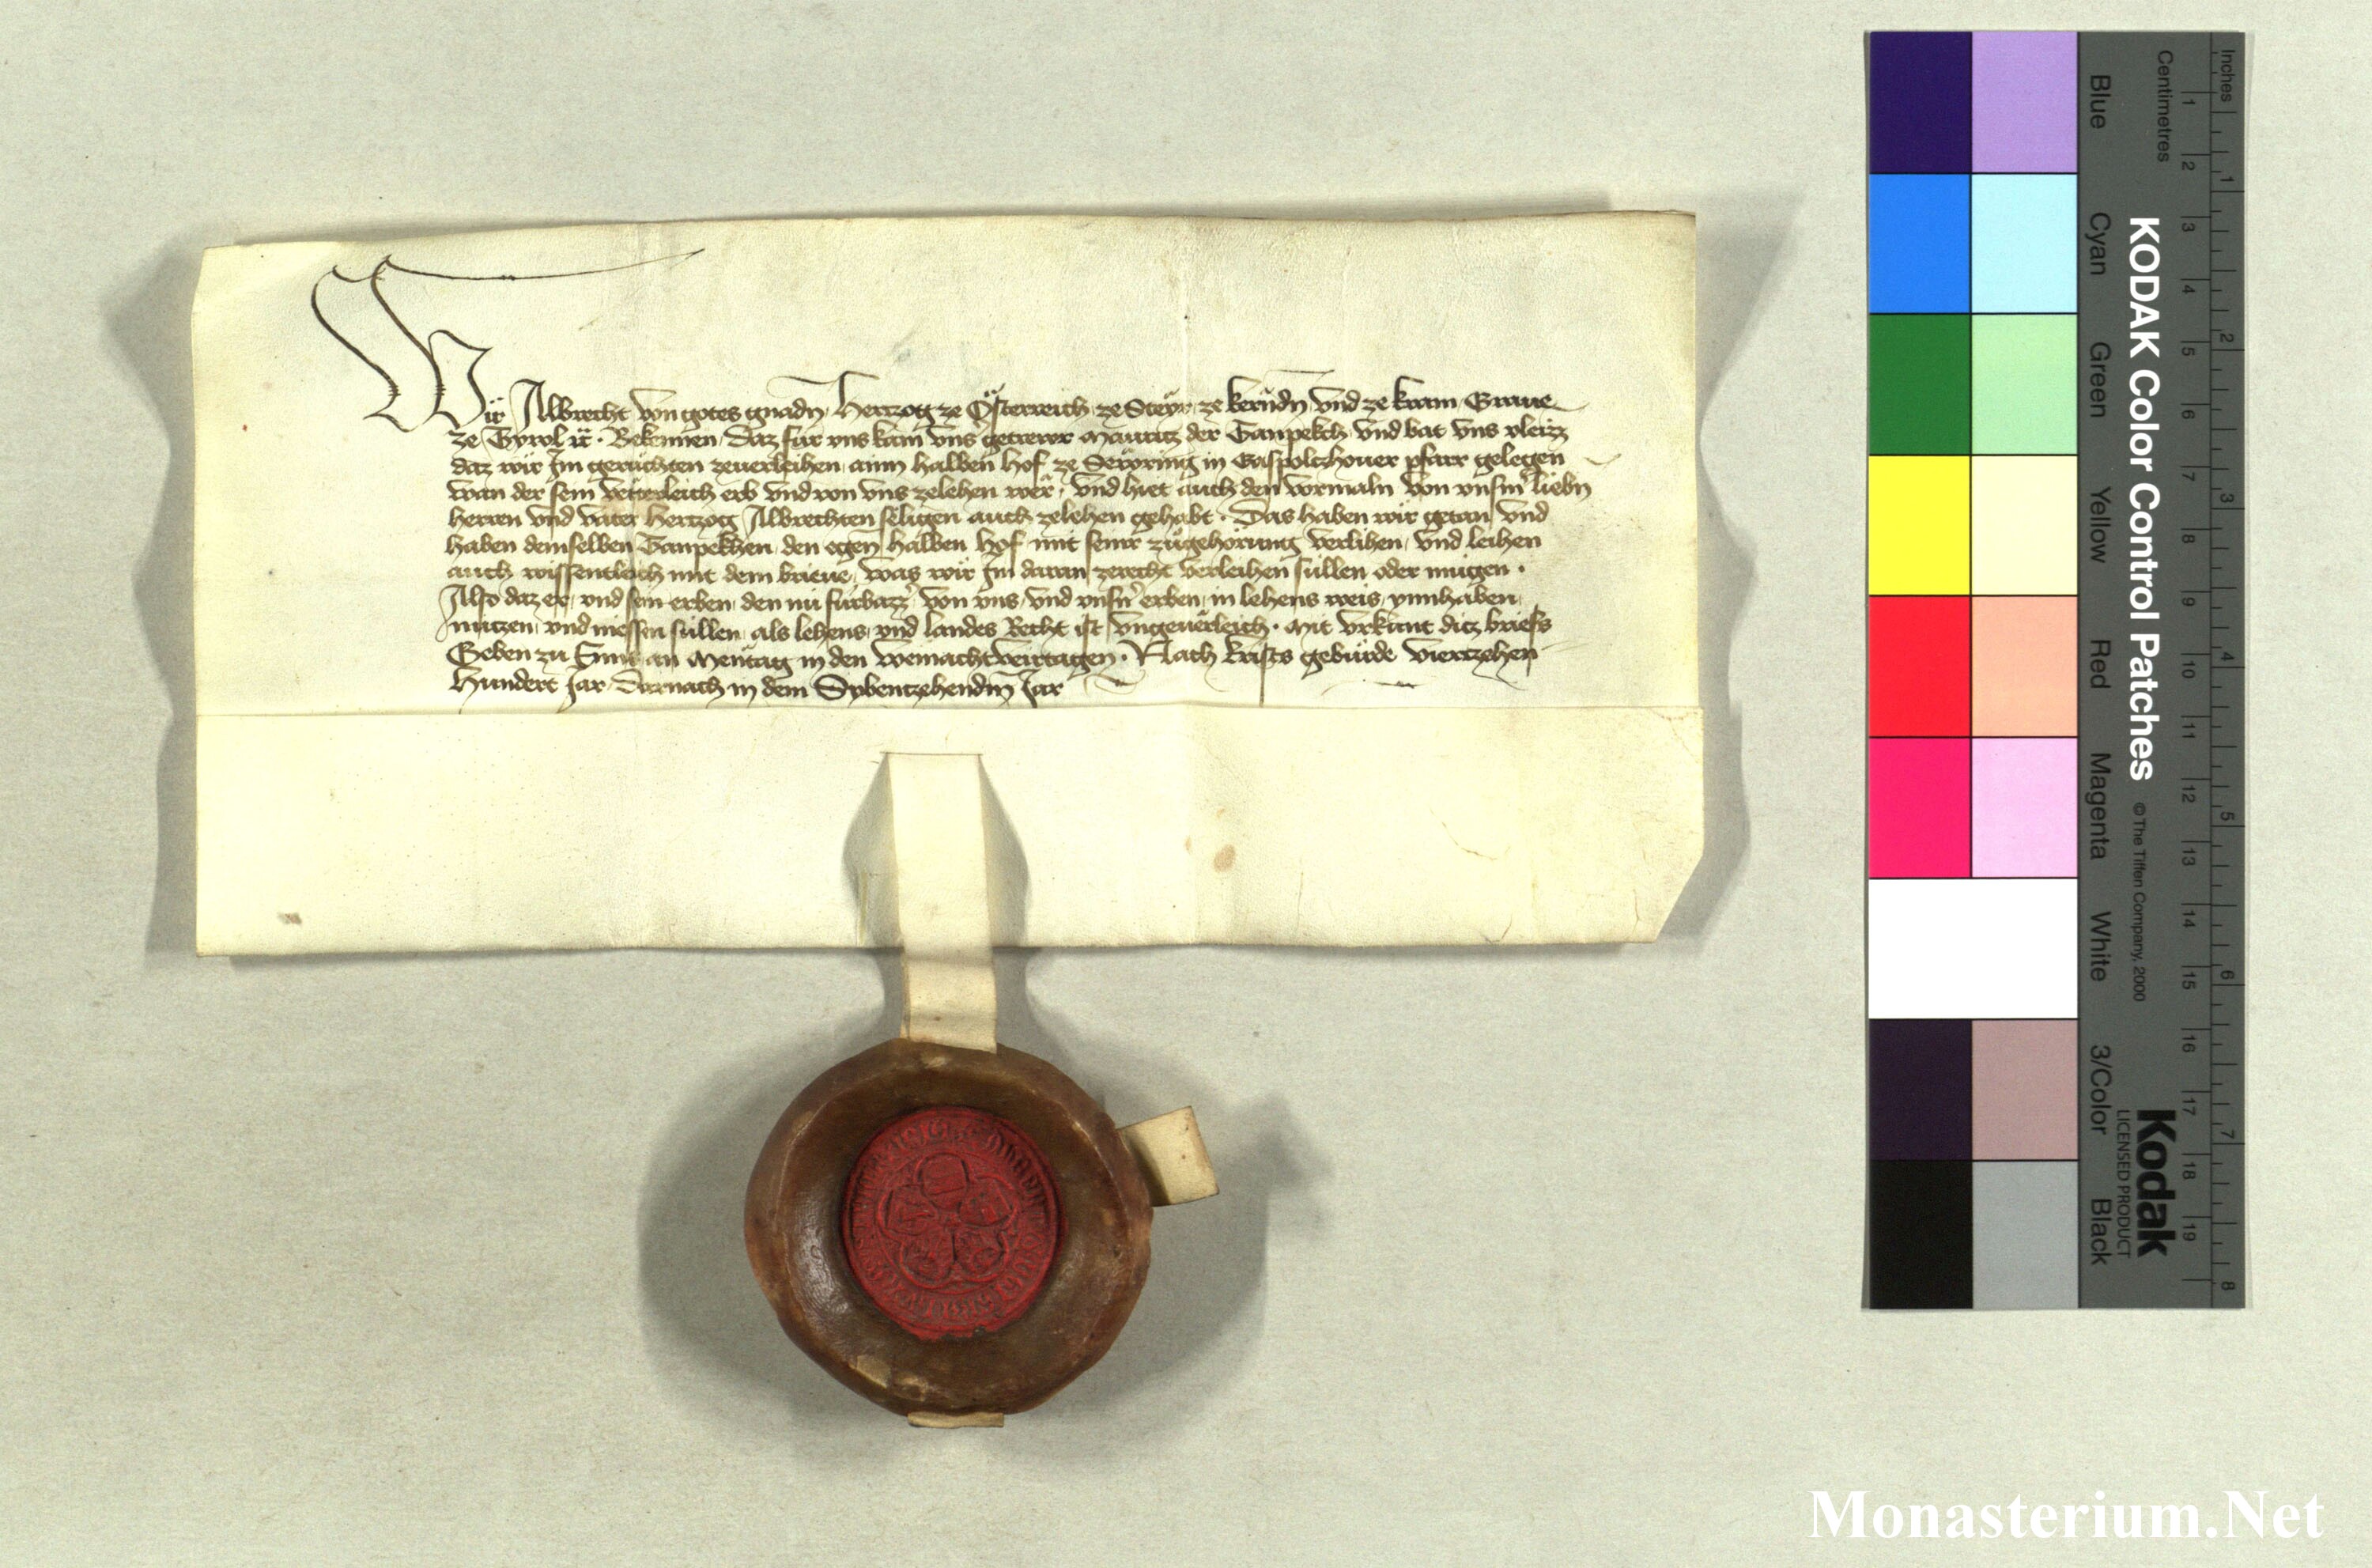 Wir Albrecht von gotes gnadn Hertzog ze Österreich ze Steyr ze kernden vnd ze krain Graue
ze Tyrol ꝛc. Bekennen Daz für vns kam vns getrewr Mauritz der Tanpekch vnd bat vns vleizz
daz wir Im geruchten zeuerleihen ainn halben hof ze in Gaspoltzhouer pfarr gelegen
wan der sein veterleich erb vnd von vns zelehen wer, vnd hiet auch den vormaln von vnsrm liebn
herren vnd vater Hertzog Albrechten seligen auch zelehen gehabt. Das haben wir getan vnd
haben demselben Tanpekhen den egen halben hof mit seinr zugehorung verlihen vnd leihen
auch wissentleich mit dem brieue, was wir Im daran zerecht verleihen sullen oder mugen.
Also daz er vnd sein erben den nu furbazz von vns vnd vnsrn erben in lehens weis ynnhaben
nutzen vnd niessen sullen als lehens vnd landes Recht ist vngeuerleich. Mit vrkunt ditz briefs
Geben zu an Mentag in den weinachtveirtagen. Nach krists geburde viertzehen
Hundert Jar Darnach in dem Sybentzehendn Jar
KODAK Color Control Patches © The Tiffen Company, 2000
Kodak
LICENSED PRODUCT
Blue Cyan Green Yellow Red Magenta White 3/Color Black
Centimetres 1 2 3 4 5 6 7 8 9 10 11 12 13 14 15 16 17 18 19
Inches 1 2 3 4 5 6 7 8
Monasterium.Net